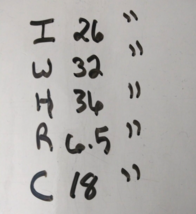 I 26"
W 32"
H 36"
R 6.5"
C 18"